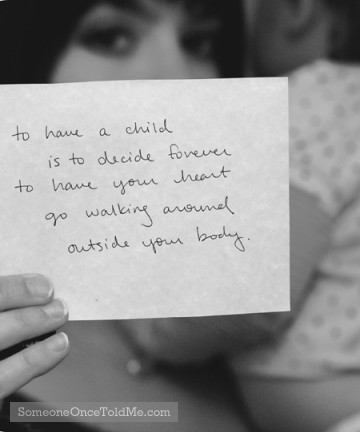 to have a child
is to decide forever
to have your heart
go walking around
outside your body.
SomeoneOnceToldMe.com